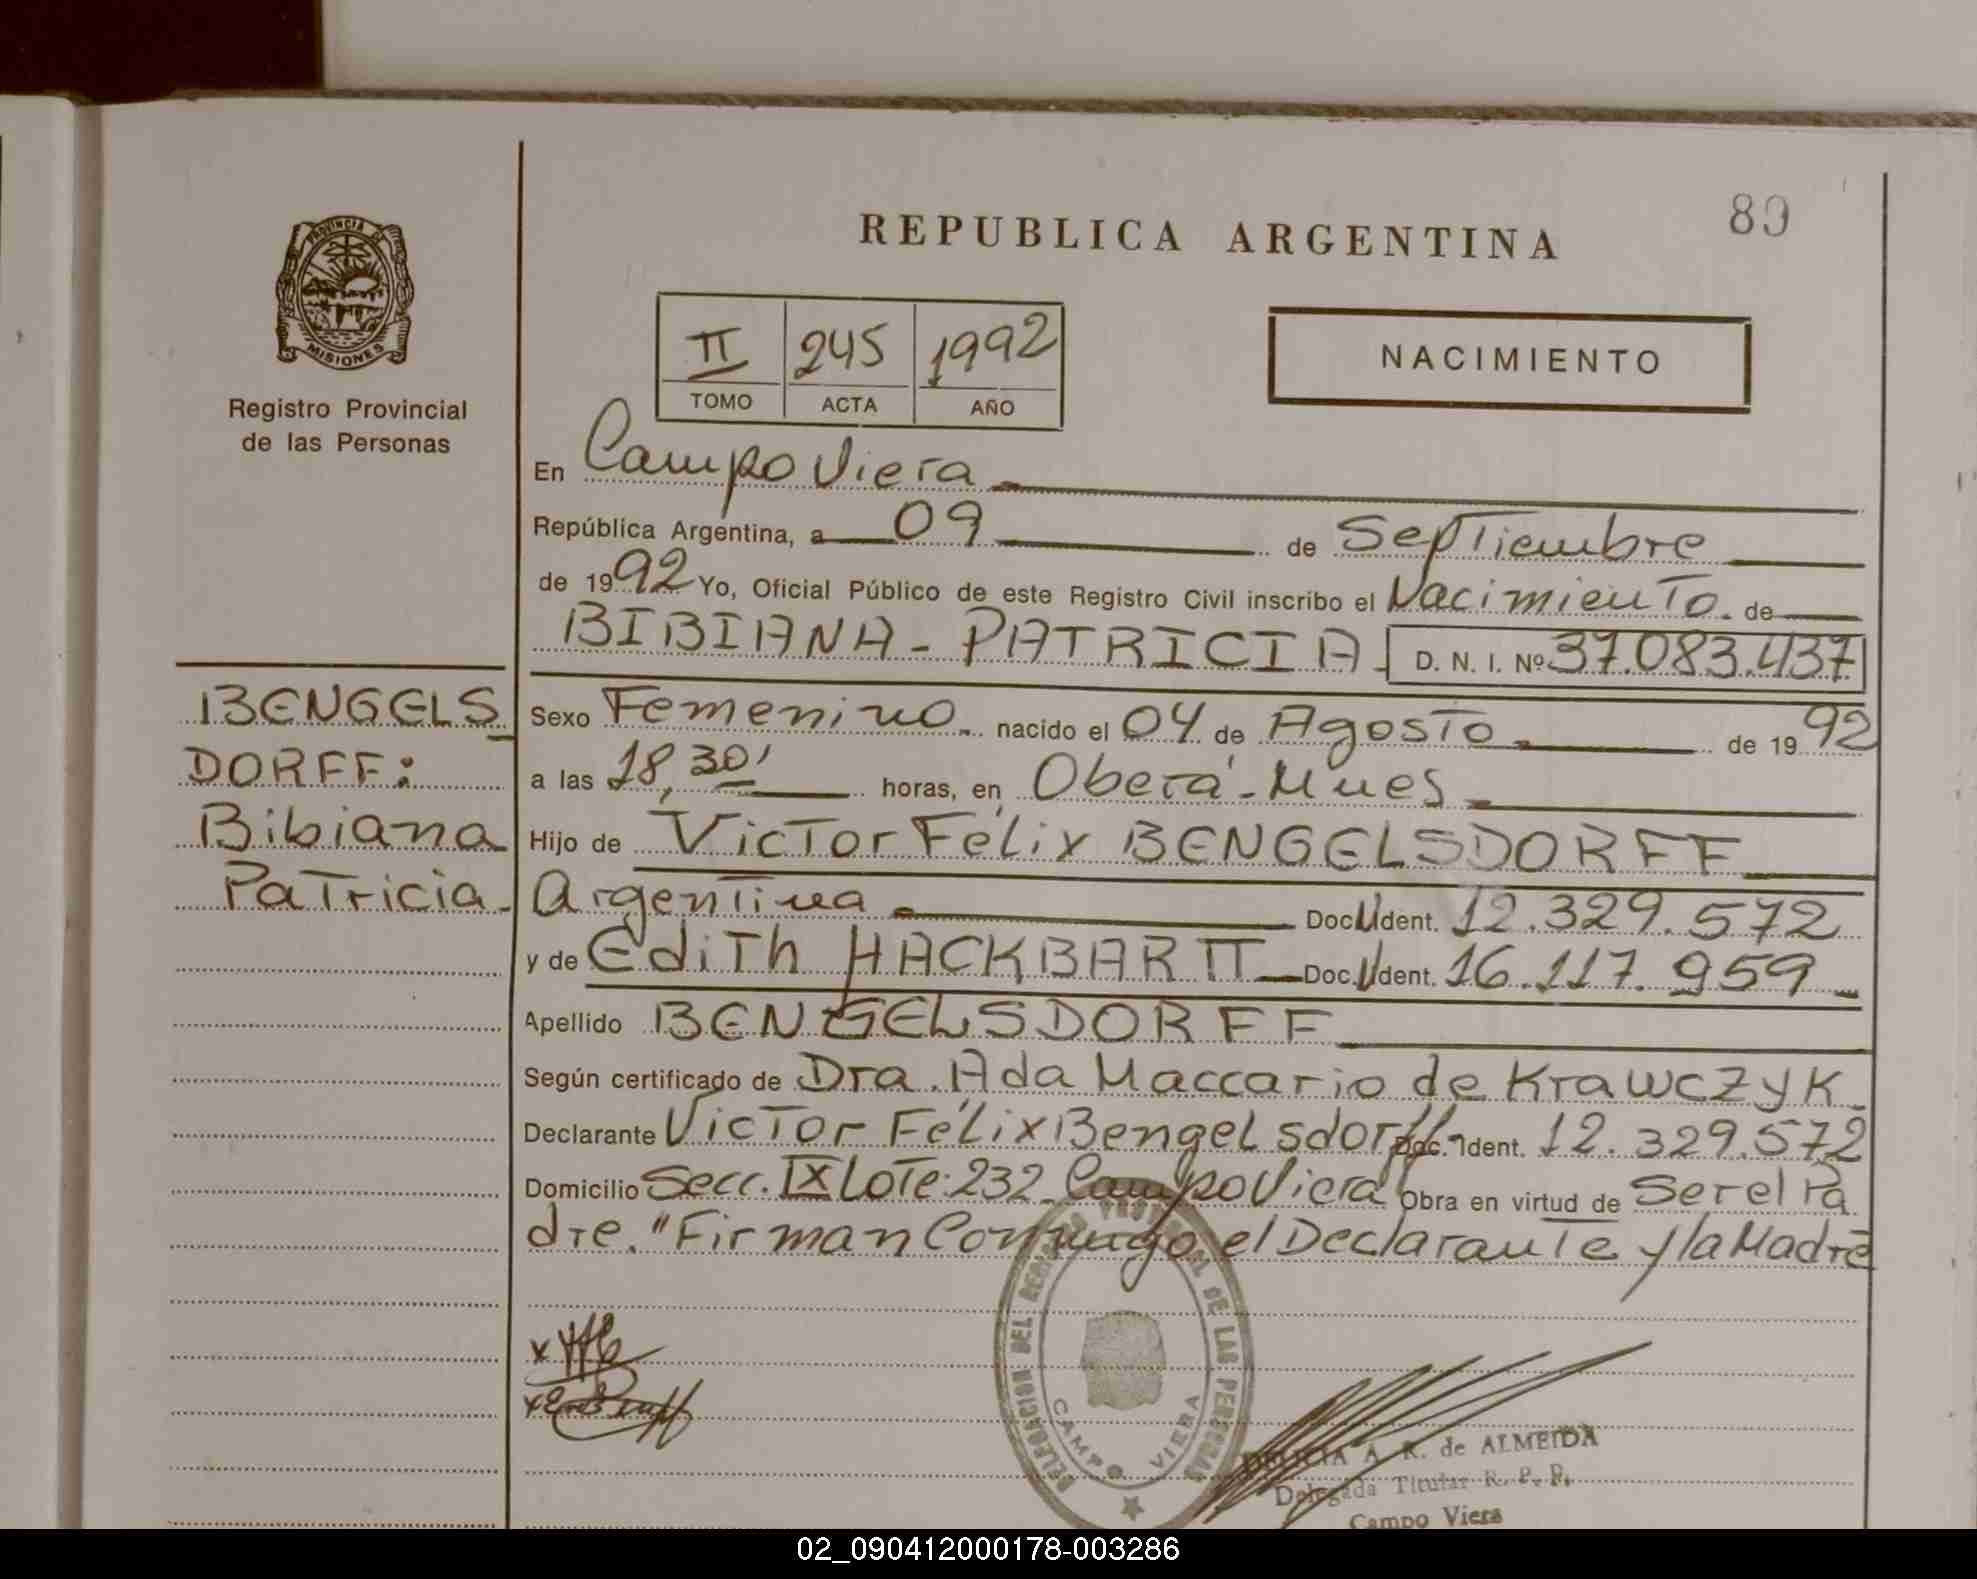 89
REPUBLICA ARGENTINA
PROVINCIA DE
MISIONES
Registro Provincial
de las Personas
II 245 1992
TOMO ACTA AÑO
NACIMIENTO
En Campo Viera
República Argentina, a 09 de Septiembre
de 1992 Yo, Oficial Público de este Registro Civil inscribo el Nacimiento. de
BIBIANA - PATRICIA - D. N. I. Nº 37.083.437
BENGELS
DORFF:
Bibiana
Patricia -
Sexo Femenino. nacido el 04 de Agosto de 1992
a las 18,30' horas, en Oberá - Mnes
Hijo de Victor Félix BENGELSDORFF
Argentina Doc. Ident. 12.329.572
y de Edith HACKBARTT Doc. Ident. 16.117.959
Apellido BENGELSDORFF
Según certificado de Dra. Ada Maccario de Krawczyk
Declarante Victor Félix Bengelsdorff Doc. Ident. 12.329.572
Domicilio Secc. IX Lote 232 Campo Viera Obra en virtud de Ser el Pa
dre. "Firman Conmigo el Declarante y la Madre
DELEGACION DEL REGISTRO PROVINCIAL DE LAS PERSONAS
CAMPO VIERA
A. R. de ALMEIDA
Delegada Titular R. P. P.
Campo Viera
02_090412000178-003286